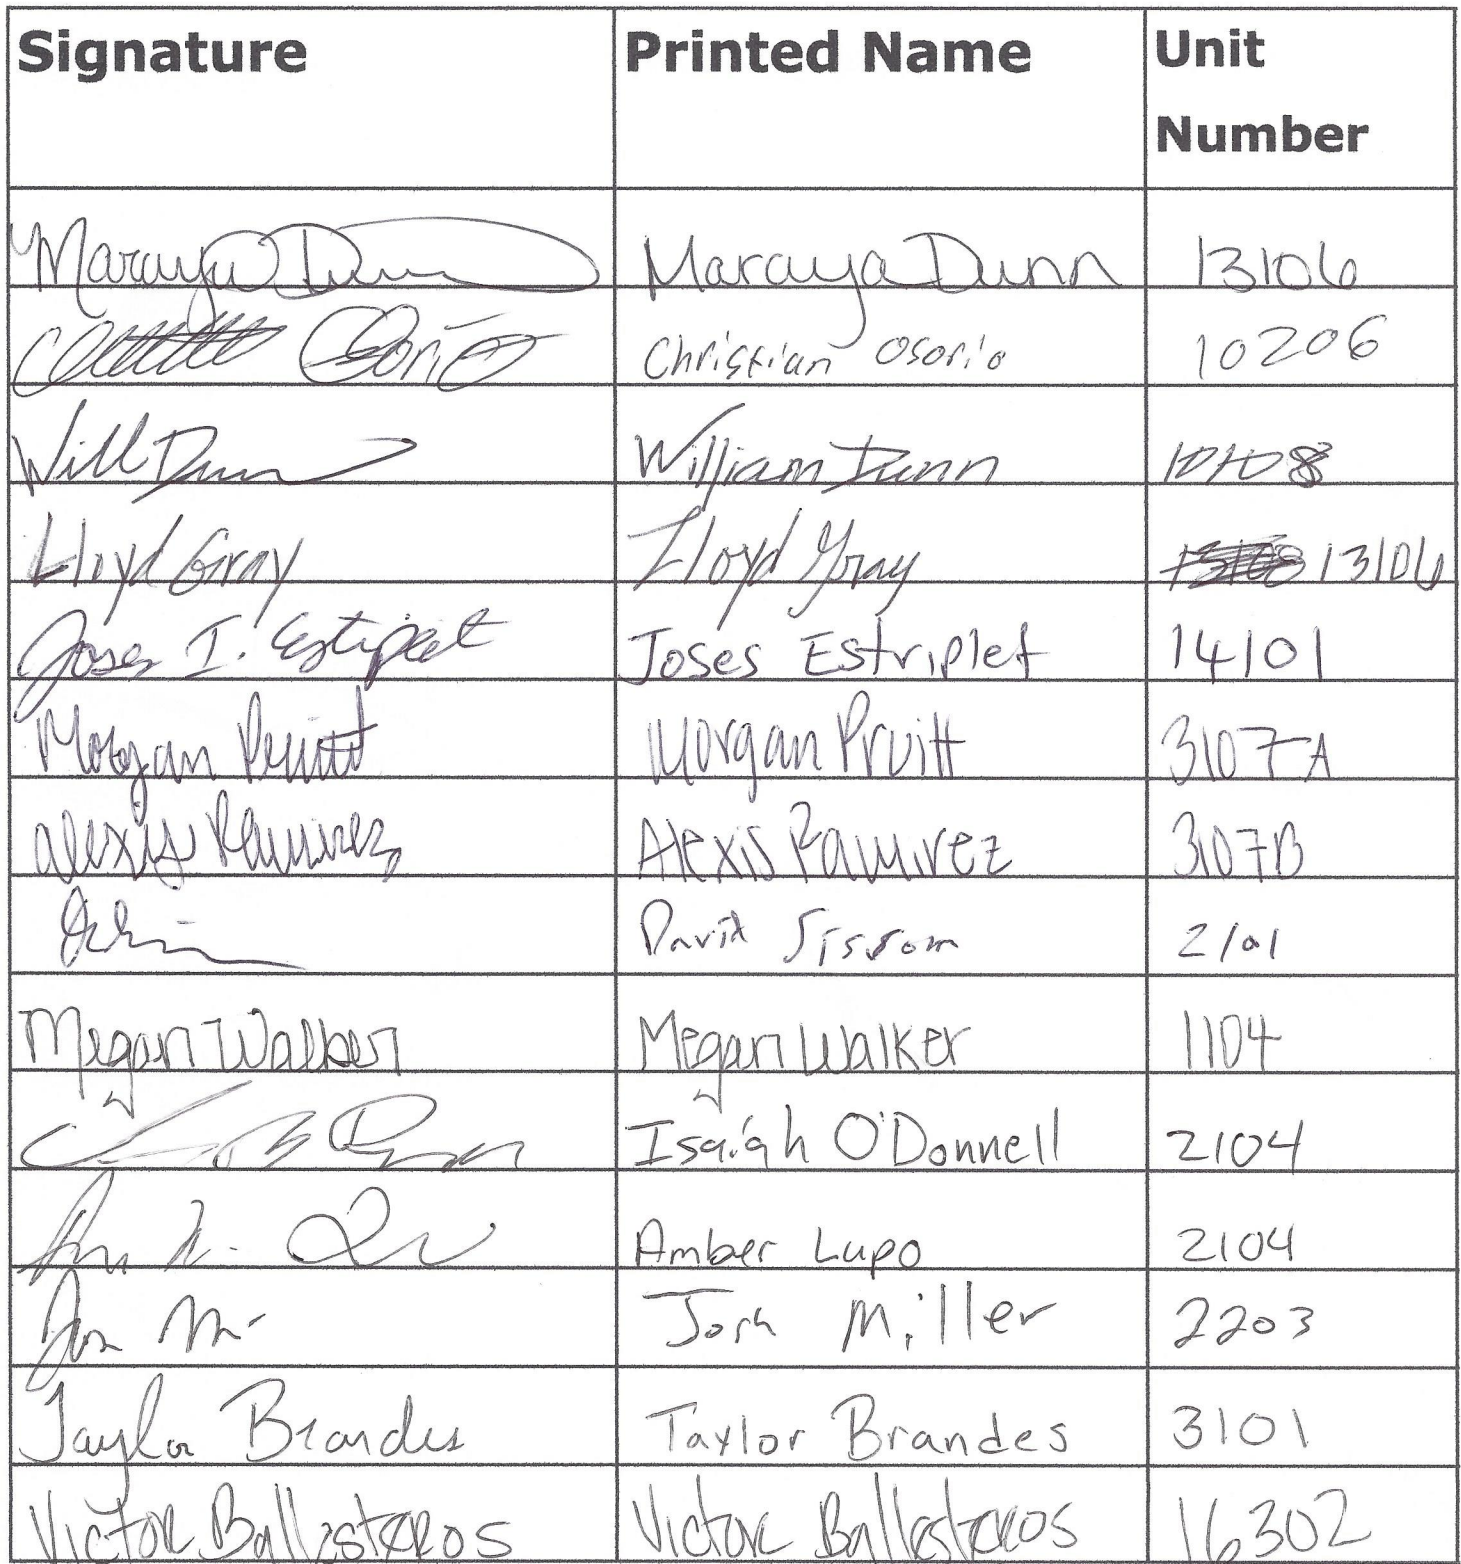 Signature Printed Name Unit
Number
Maraya Dunn Maraya Dunn 13106
Osorio Christian Osorio 10206
Will Dunn William Dunn 10108
Lloyd Gray Lloyd Gray 13106
Joses I. Estriplet Joses Estriplet 14101
Morgan Pruitt Morgan Pruitt 3107A
Alexis Ramirez Alexis Ramirez 3107B
David Sissom 2101
Megan Walker Megan Walker 1104
Isaiah O'Donnell 2104
Amber Lupo 2104
Josh Miller 2203
Taylor Brandes Taylor Brandes 3101
Victor Ballesteros Victor Ballesteros 16302